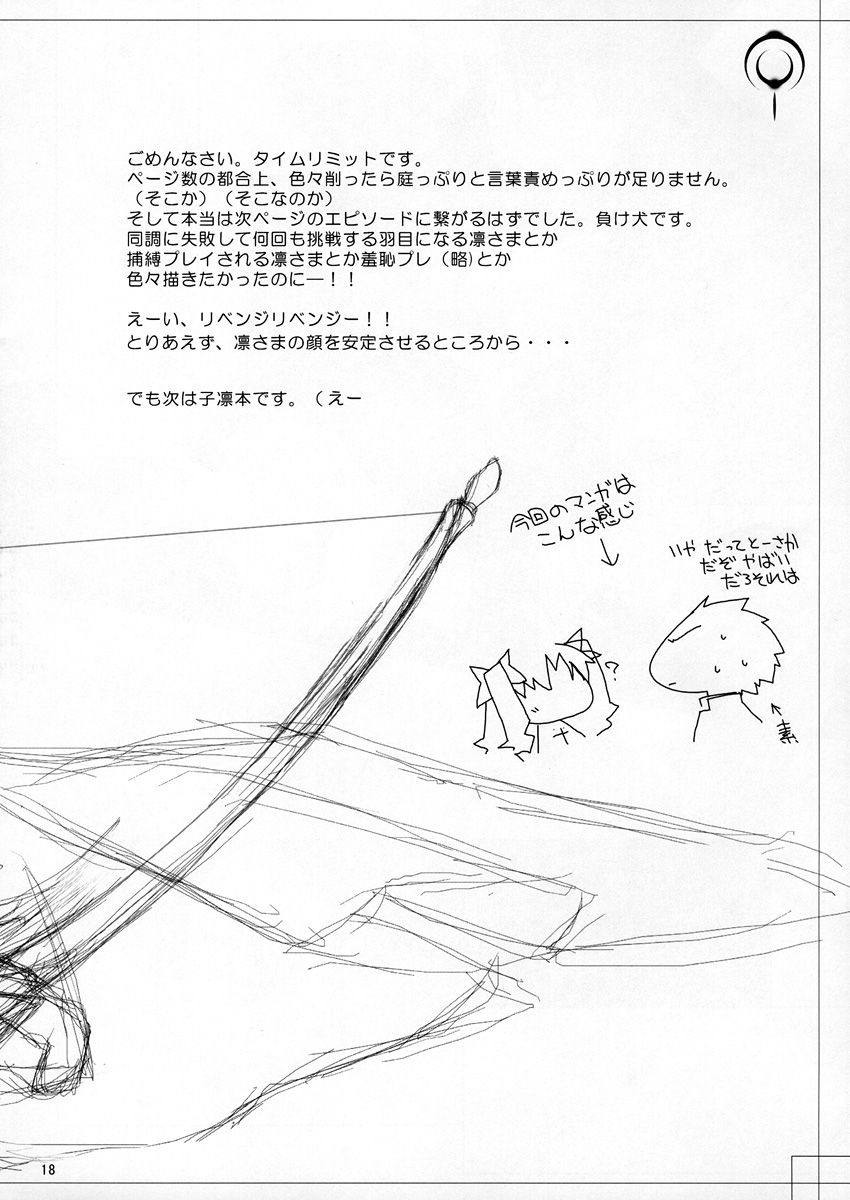 ごめんなさい。タイムリミットです。
ページ数の都合上、色々削ったら庭っぷりと言葉責めっぷりが足りません。
（そこか）（そこなのか）
そして本当は次ページのエピソードに繋がるはずでした。負け犬です。
同調に失敗して何回も挑戦する羽目になる凛さまとか
捕縛プレイされる凛さまとか羞恥プレ（略）とか
色々描きたかったのに―！！
えーい、リベンジリベンジー！！
とりあえず、凛さまの顔を安定させるところから・・・
でも次は子凛本です。（えー
今回のマンガは
こんな感じ
↓
いや だってとーさか
だぞ やばい
だろそれは
?
↖
素
18